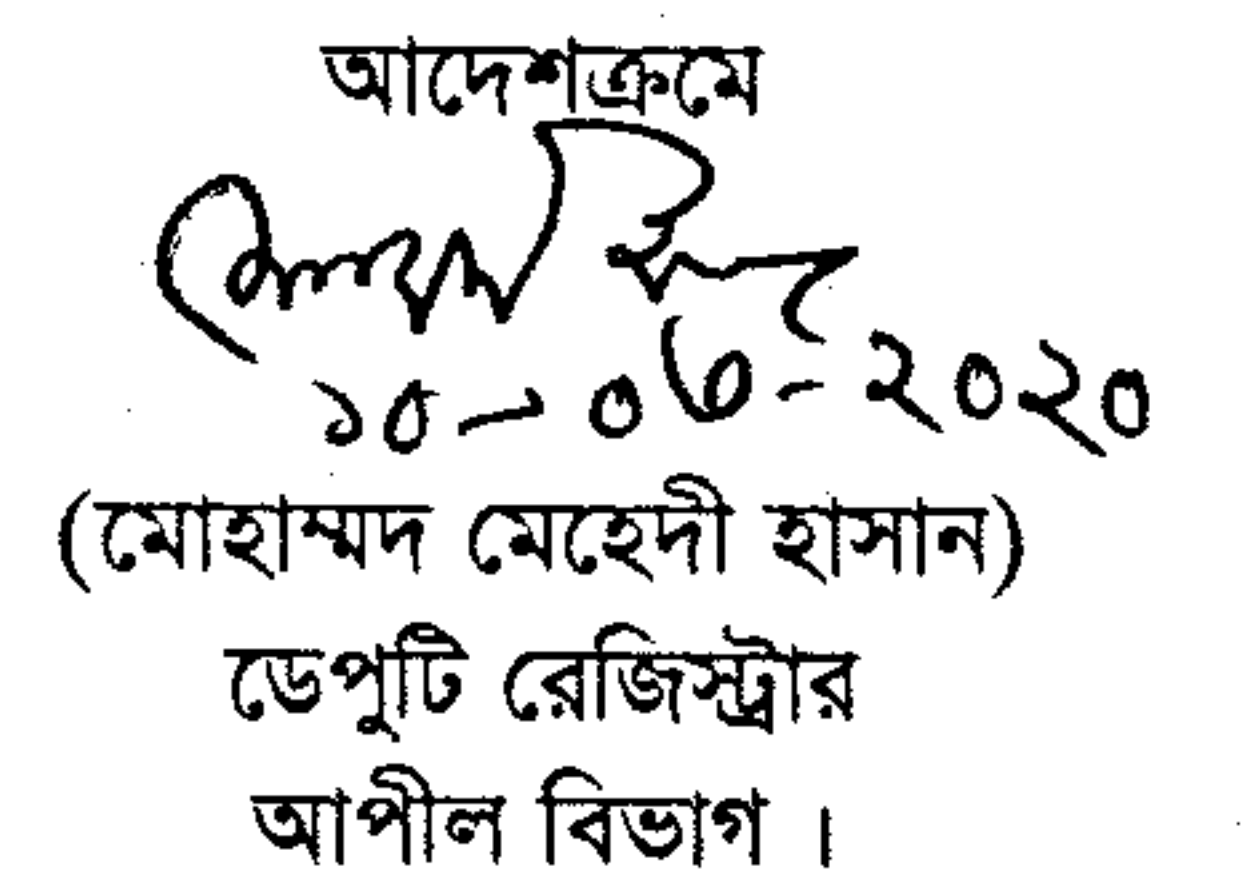 আদেশক্রমে
১০-০৩-২০২০
(মোহাম্মদ মেহেদী হাসান)
ডেপুটি রেজিস্ট্রার
আপীল বিভাগ ।